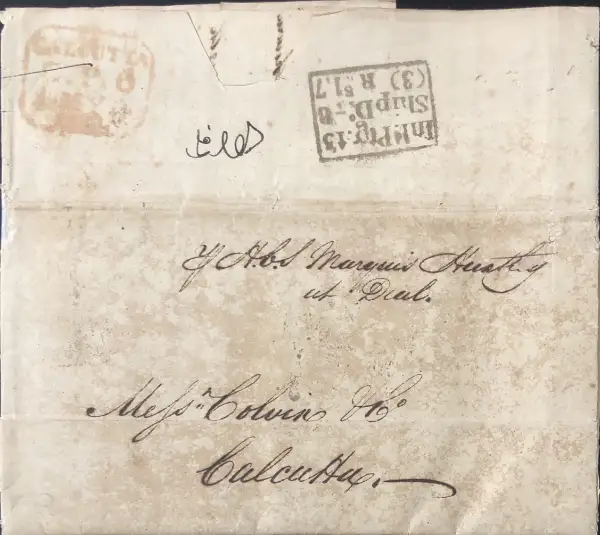 CALCUTTA
Inl.d Ptg. 13
Ship D.o - 8
(3) R s1.7
p H.C.S Marquis Huntly
at Deal.
Messrs Colvin & Co
Calcutta.